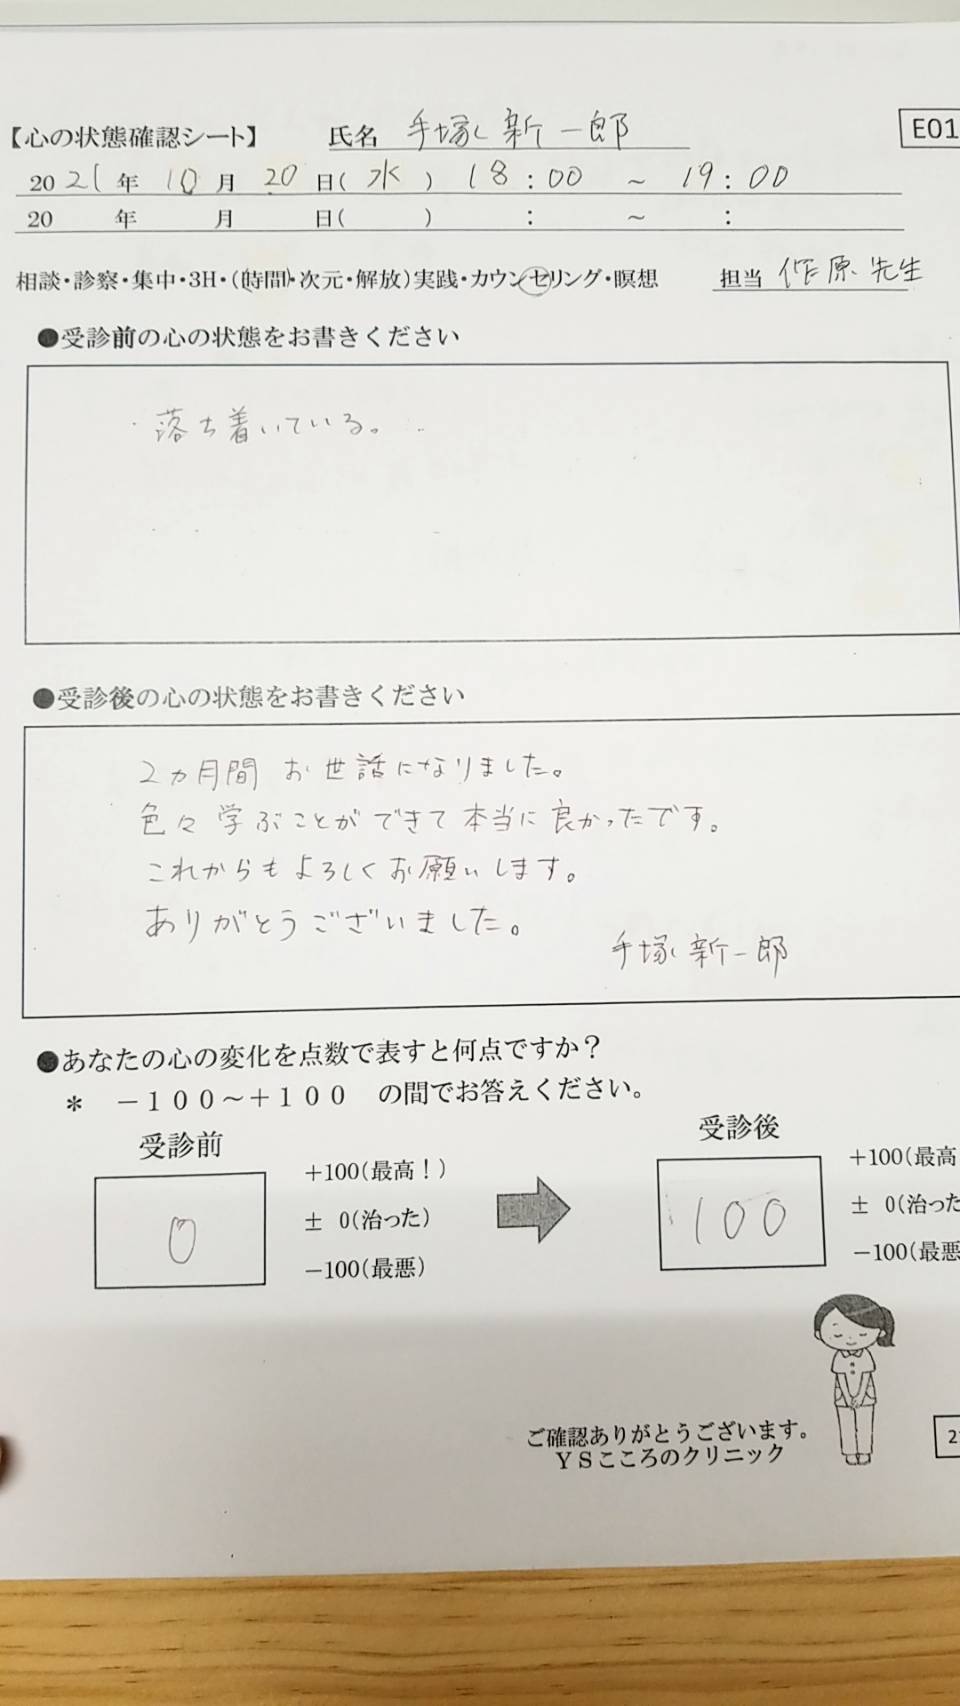 【心の状態確認シート】 氏名 手塚新一郎 E01
2021年 10月 20日(水) 18:00 ～ 19:00
20 年 月 日( ) : ～ :
相談・診察・集中・3H・(時間・次元・解放)実践・カウンセリング・瞑想 担当 作原先生
●受診前の心の状態をお書きください
・落ち着いている。
●受診後の心の状態をお書きください
2ヵ月間 お世話になりました。
色々学ぶことができて本当に良かったです。
これからもよろしくお願いします。
ありがとうございました。
手塚新一郎
●あなたの心の変化を点数で表すと何点ですか？
＊ －１００～＋１００ の間でお答えください。
受診前 受診後
+100(最高！) +100(最高
0 ± 0(治った) 100 ± 0(治った
－100(最悪) －100(最悪
ご確認ありがとうございます。
ＹＳこころのクリニック